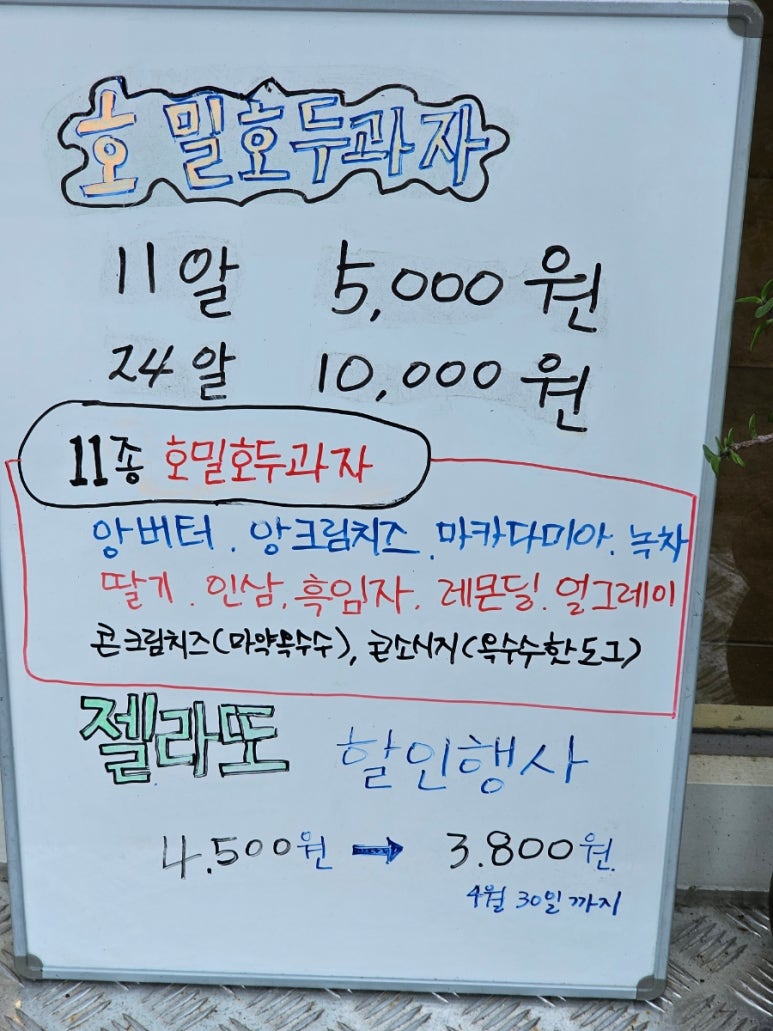 호밀호두과자
11알 5,000원
24알 10,000원
11종 호밀호두과자
앙버터. 앙크림치즈. 마카다미아. 녹차
딸기. 인삼. 흑임자. 레몬딜. 얼그레이
콘크림치즈(마약옥수수), 콘소시지(옥수수핫도그)
젤라또 할인행사
4.500원 → 3.800원.
4월 30일까지